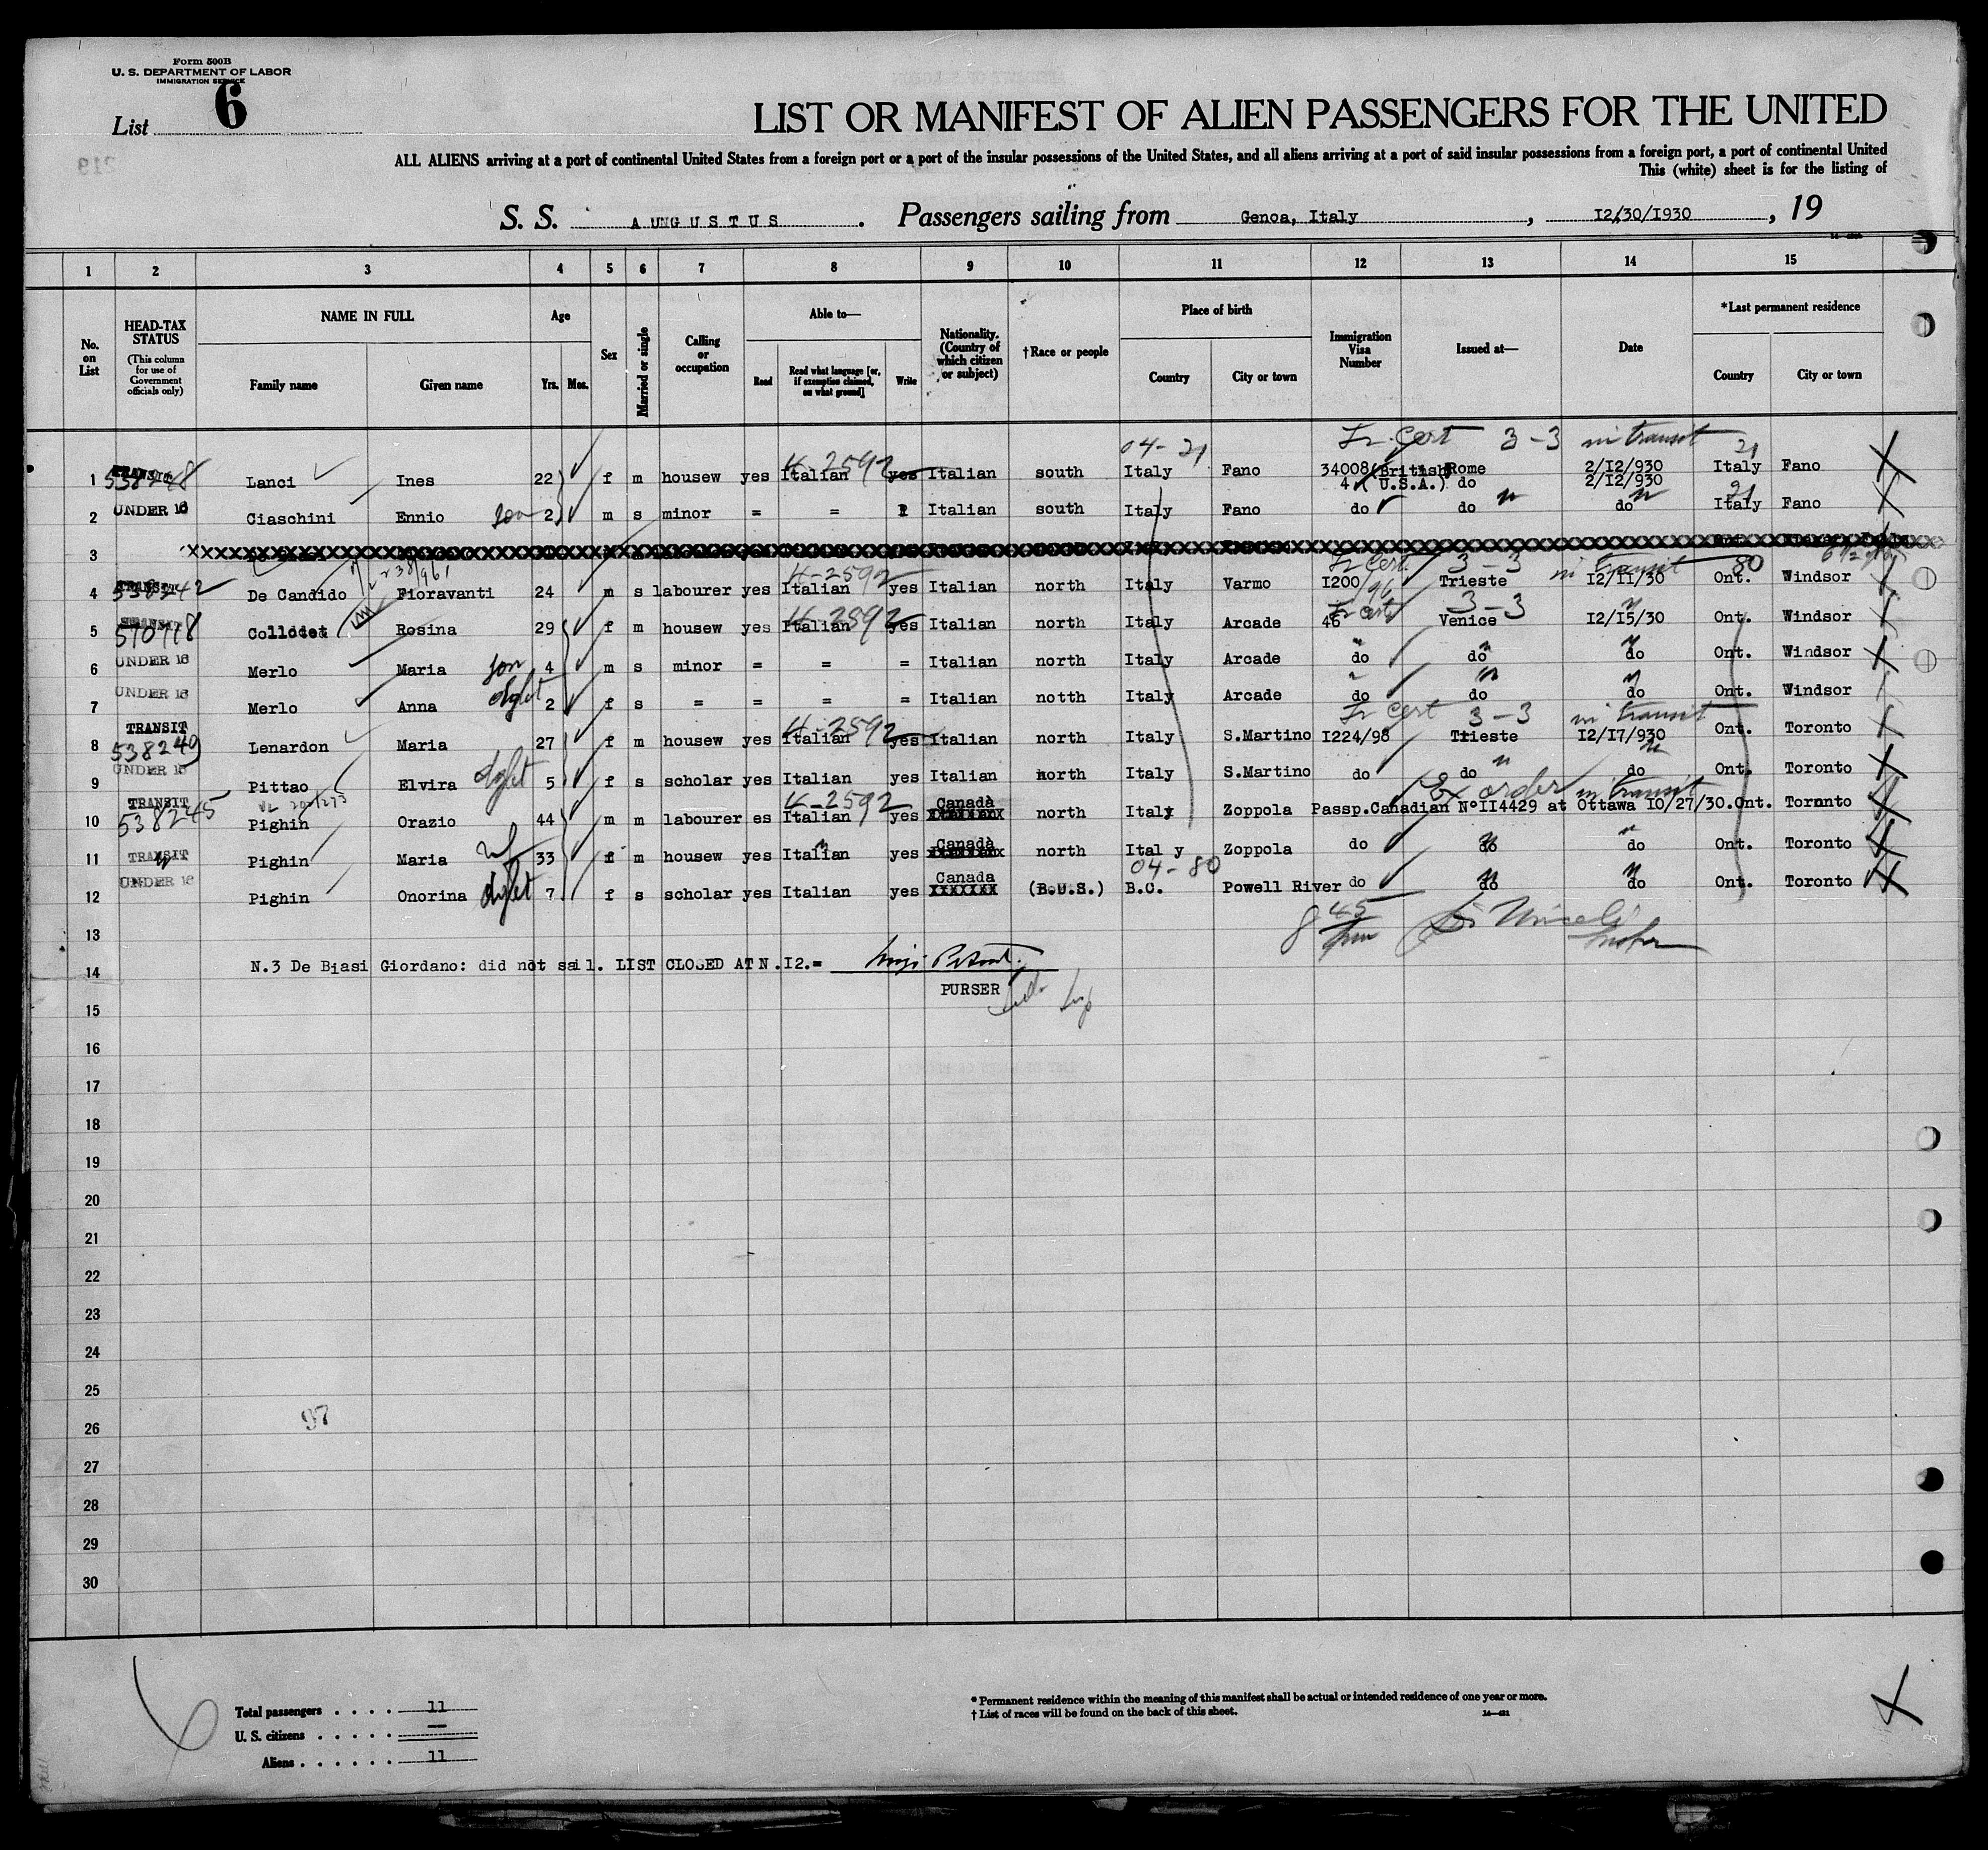 Form 500B
U. S. DEPARTMENT OF LABOR
IMMIGRATION SERVICE
List 6
LIST OR MANIFEST OF ALIEN PASSENGERS FOR THE UNITED
ALL ALIENS arriving at a port of continental United States from a foreign port or a port of the insular possessions of the United States, and all aliens arriving at a port of said insular possessions from a foreign port, a port of continental United
This (white) sheet is for the listing of
S. S. AUNGUSTUS. Passengers sailing from Genoa, Italy, 12/30/1930, 19
1 2 3 4 5 6 7 8 9 10 11 12 13 14 15
No. on List
HEAD-TAX STATUS (This column for use of Government officials only)
NAME IN FULL Family name Given name
Age Yrs. Mos.
Sex
Married or single
Calling or occupation
Able to— Read Read what language [or, if exemption claimed, on what ground] Write
Nationality. (Country of which citizen or subject)
†Race or people
Place of birth Country City or town
Immigration Visa Number
Issued at—
Date
*Last permanent residence Country City or town
04-21 Tr. Cert 3-3 in transit 21
1 TRANSIT 538248 Lanci Ines 22 f m housew yes Italian 4-2592 yes Italian south Italy Fano 34008(British) Rome 2/I2/930 Italy Fano
4 (U.S.A.) do 2/I2/930
2 UNDER 16 Ciaschini Ennio son 2 m s minor = = Italian south Italy Fano do do do 21 Italy Fano
3
Tr Cert 3-3 in transit 80
4 TRANSIT 538242 De Candido Fioravanti 24 m s labourer yes Italian 4-2592 yes Italian north Italy Varmo I200/96 Trieste I2/II/30 Ont. Windsor
5 TRANSIT 570718 Collodet Rosina 29 f m housew yes Italian 4-2592 yes Italian north Italy Arcade 46 Tr Cert Venice 3-3 I2/I5/30 Ont. Windsor
6 UNDER 16 Merlo Maria son 4 m s minor = = = Italian north Italy Arcade do do do Ont. Windsor
7 UNDER 16 Merlo Anna dght 2 f s = = = = Italian notth Italy Arcade do do do Ont. Windsor
Tr Cert 3-3 in transit
8 TRANSIT 538249 Lenardon Maria 27 f m housew yes Italian 4-2592 yes Italian north Italy S.Martino I224/98 Trieste I2/I7/930 Ont. Toronto
9 UNDER 16 Pittao Elvira dght 5 f s scholar yes Italian yes Italian north Italy S.Martino do do do Ont. Toronto
Ex order in transit
10 TRANSIT 538245 Pighin Orazio 44 m m labourer es Italian 4-2592 yes Canadà north Italy Zoppola Passp.Canadian N°II4429 at Ottawa I0/27/30.Ont. Toronto
11 TRANSIT Pighin Maria wf 33 f m housew yes Italian yes Canadà north Ital y Zoppola do do do Ont. Toronto
04-80
12 UNDER 16 Pighin Onorina dght 7 f s scholar yes Italian yes Canada xxxxxxx (B.U.S.) B.C. Powell River do do do Ont. Toronto
13
14 N.3 De Biasi Giordano: did not sail. LIST CLOSED AT N.I2.=
PURSER
15
16
17
18
19
20
21
22
23
24
25
26
97
27
28
29
30
Total passengers . . . . 11
U. S. citizens . . . . . —
Aliens . . . . . . 11
* Permanent residence within the meaning of this manifest shall be actual or intended residence of one year or more.
† List of races will be found on the back of this sheet.